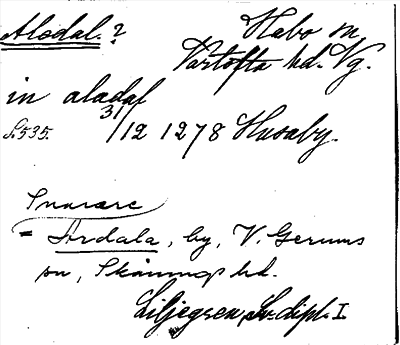 Alodal.? Habo sn
Vartofta hd. Vg.
in aladal
S. 535. 31/12 1278 Husaby.
Snarare
= Ardala, by, V. Gerums
sn, Skånings hd.
Liljegren, Sv. dipl. I